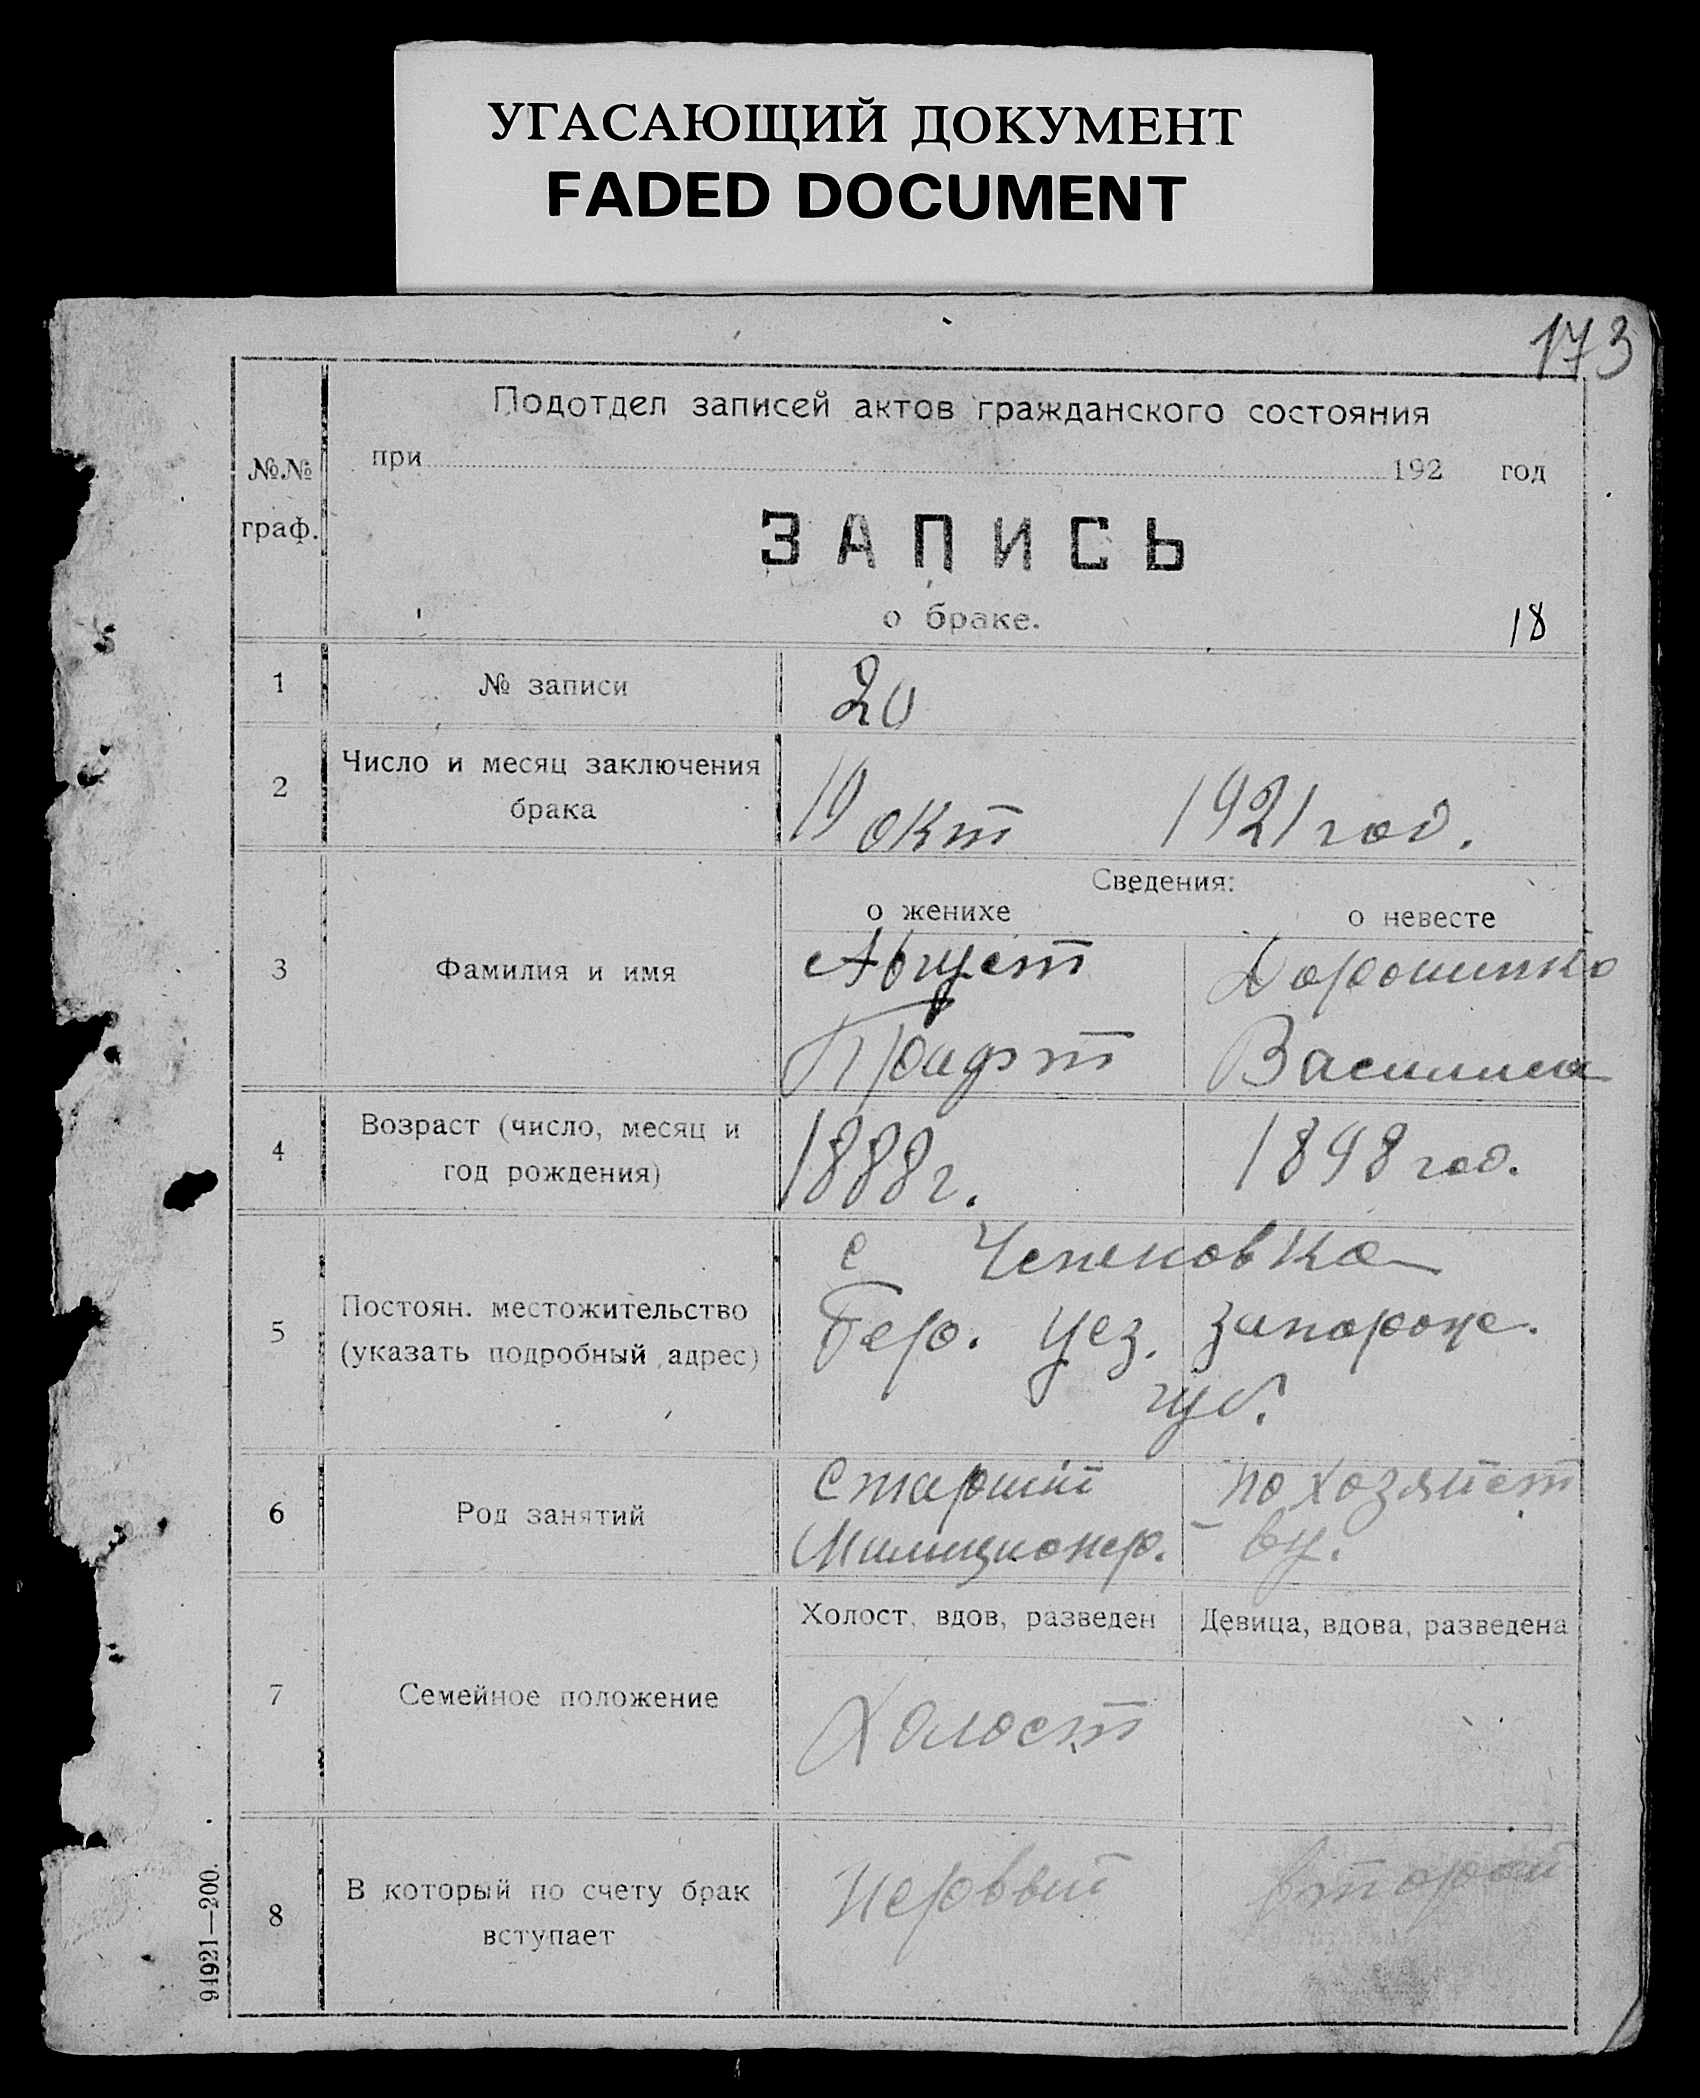 УГАСАЮЩИЙ ДОКУМЕНТ
FADED DOCUMENT
173
Подотдел записей актов гражданского состояния
№№
граф.
при 192 год
ЗАПИСЬ
о браке.
18
1 № записи 20
2 Число и месяц заключения
брака
19 окт 1921 год.
Сведения:
о женихе о невесте
3 Фамилия и имя
Август
Василиса
4 Возраст (число, месяц и
год рождения)
1888 г. 1898 год.
5 Постоян. местожительство
(указать подробный адрес)
с
Бер. уез. Запорож.
губ.
6 Род занятий
Старший по хозяйст
Милиционер. – ву.
Холост, вдов, разведен Девица, вдова, разведена
7 Семейное положение
Холост
8 В который по счету брак
вступает
Первый второй
94921—200.